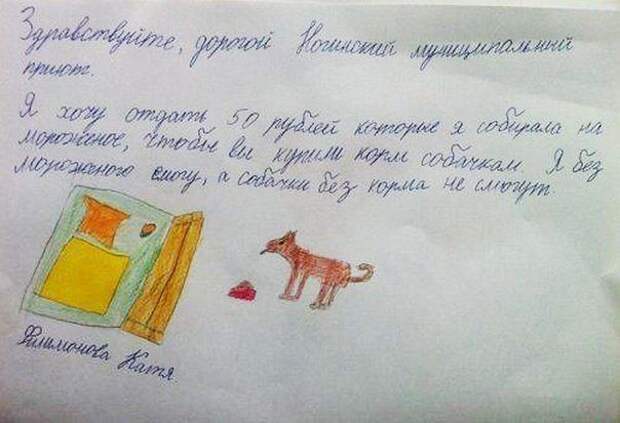 Здравствуйте, дорогой Ногинский муниципальный
приют.
Я хочу отдать 50 рублей которые я собирала на
мороженое, чтобы вы купили корм собачкам. Я без
мороженого смогу, а собачки без корма не смогут.
Филимонова Катя.